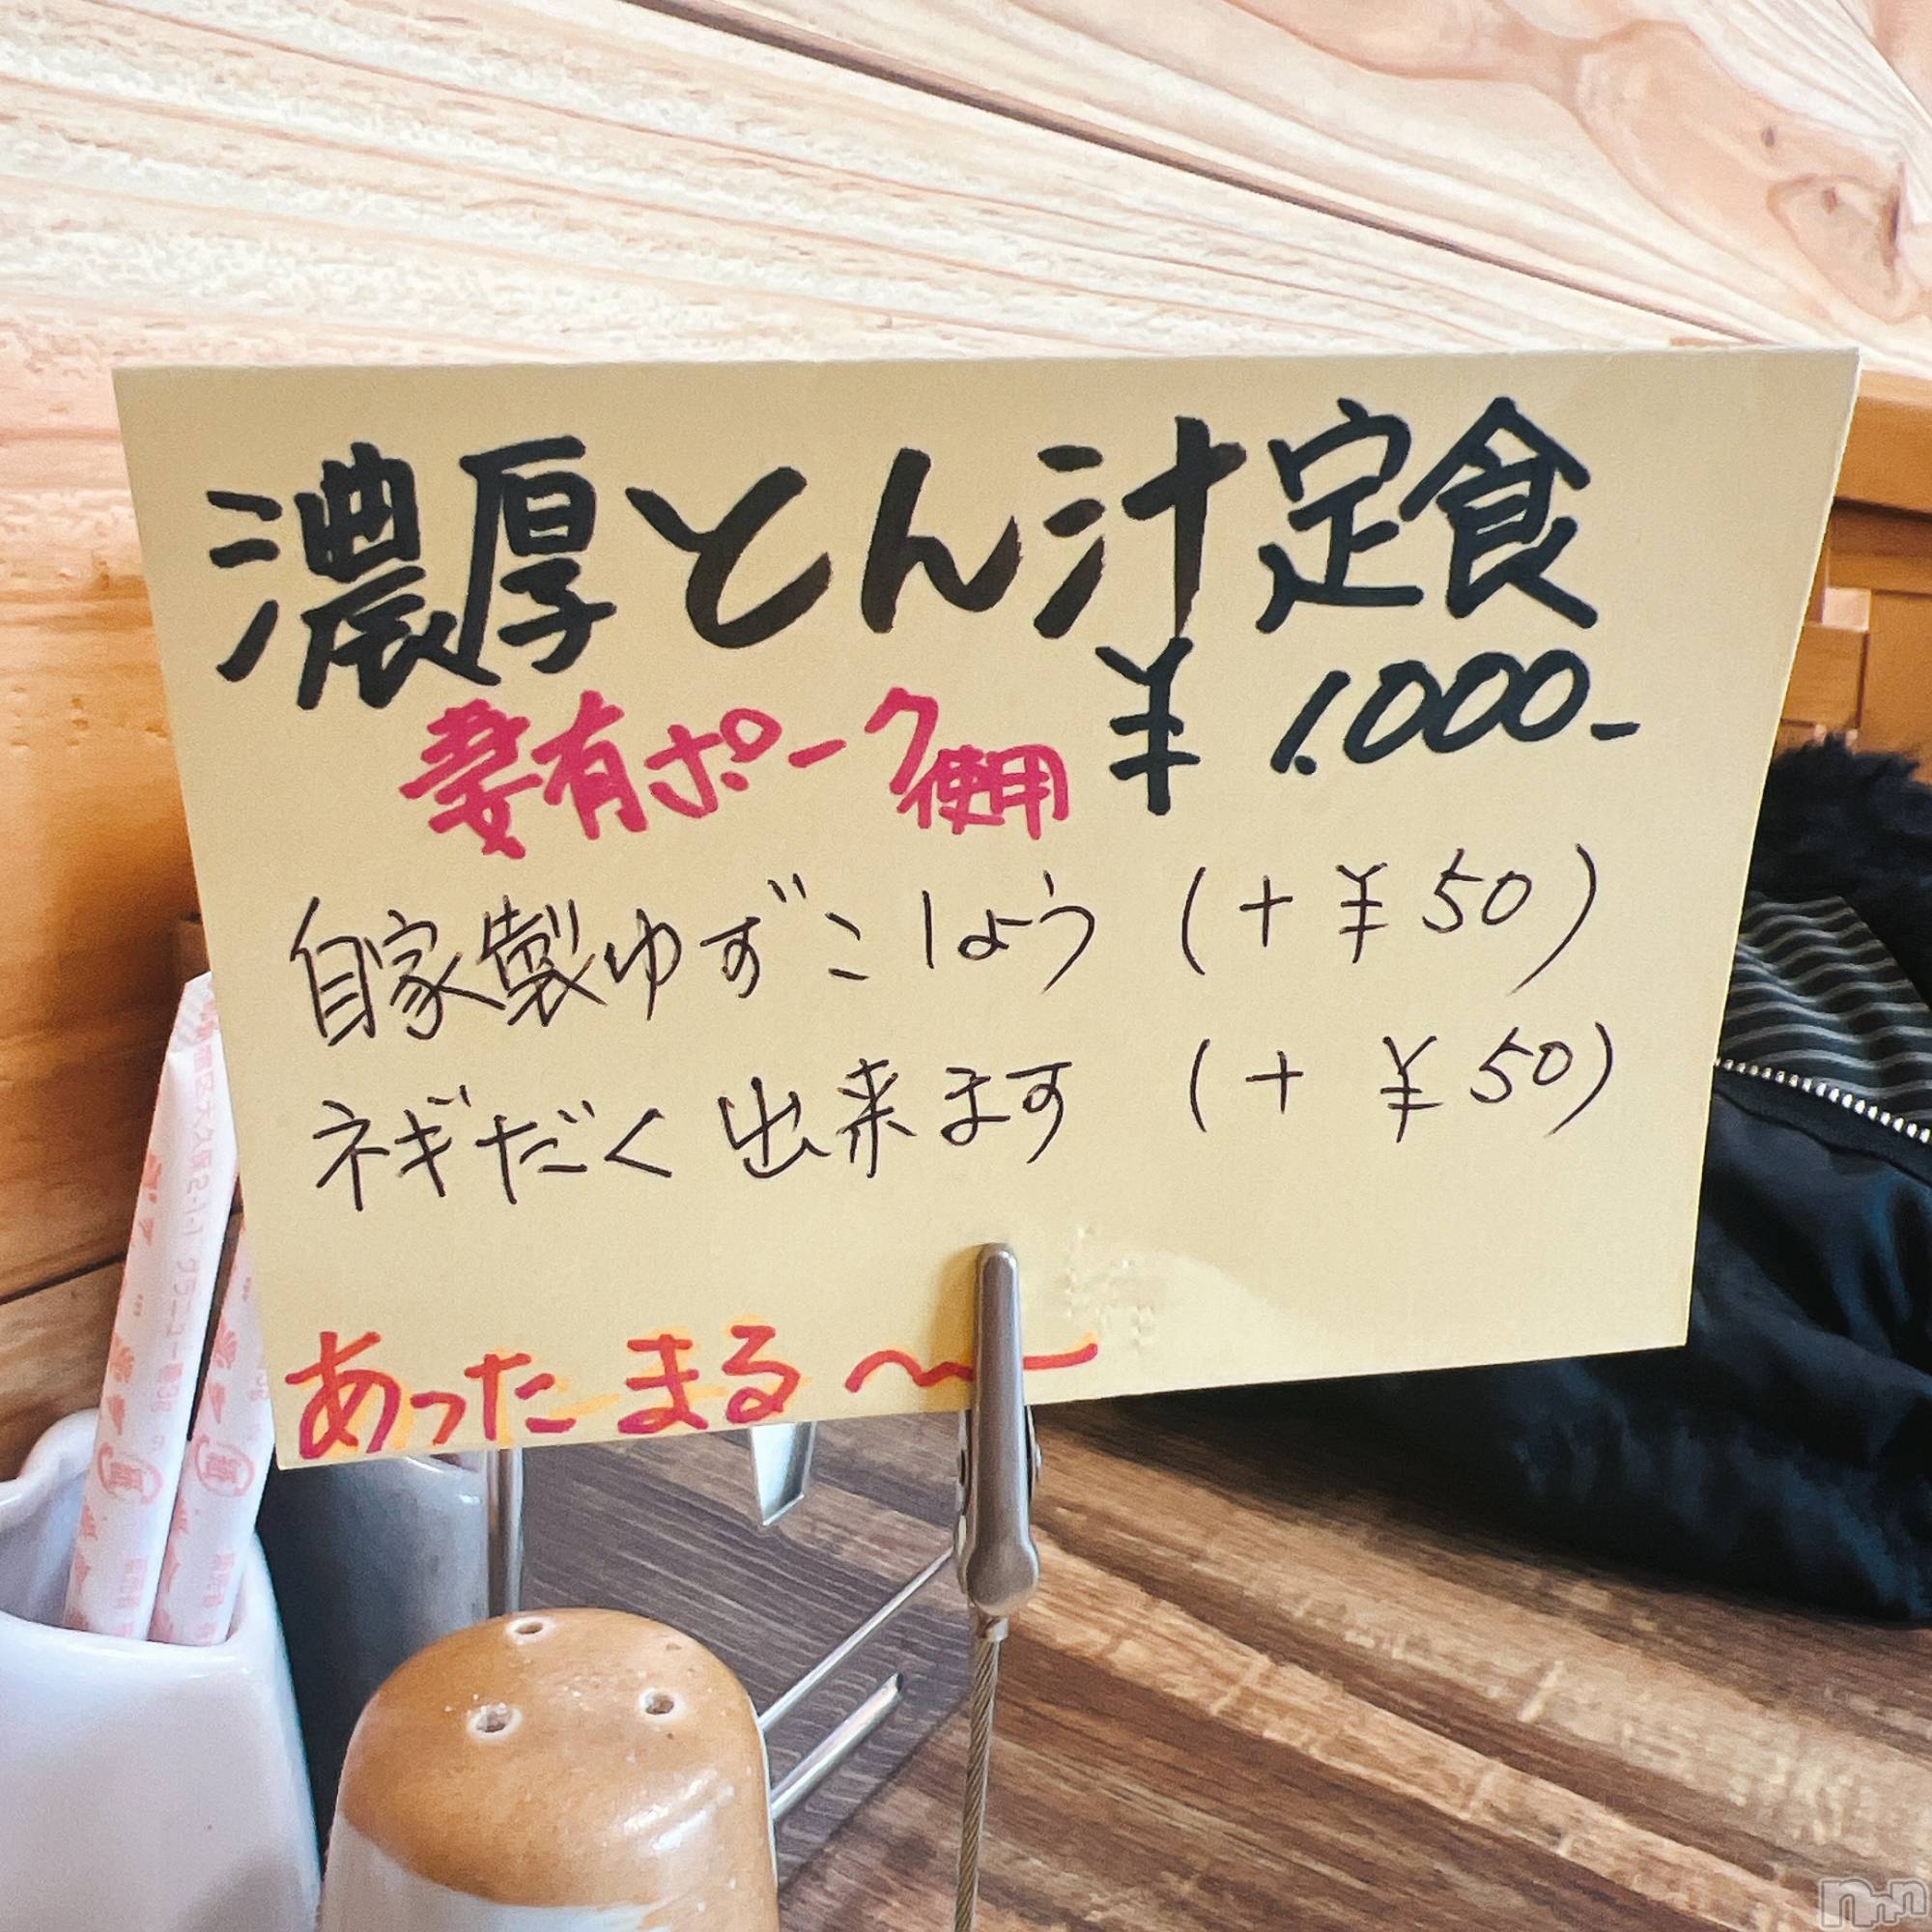 濃厚とん汁定食
¥1.000-
妻有ポーク使用
自家製ゆずこしょう (+¥50)
ネギだく出来ます (+ ¥50)
あったまる〜
nnn